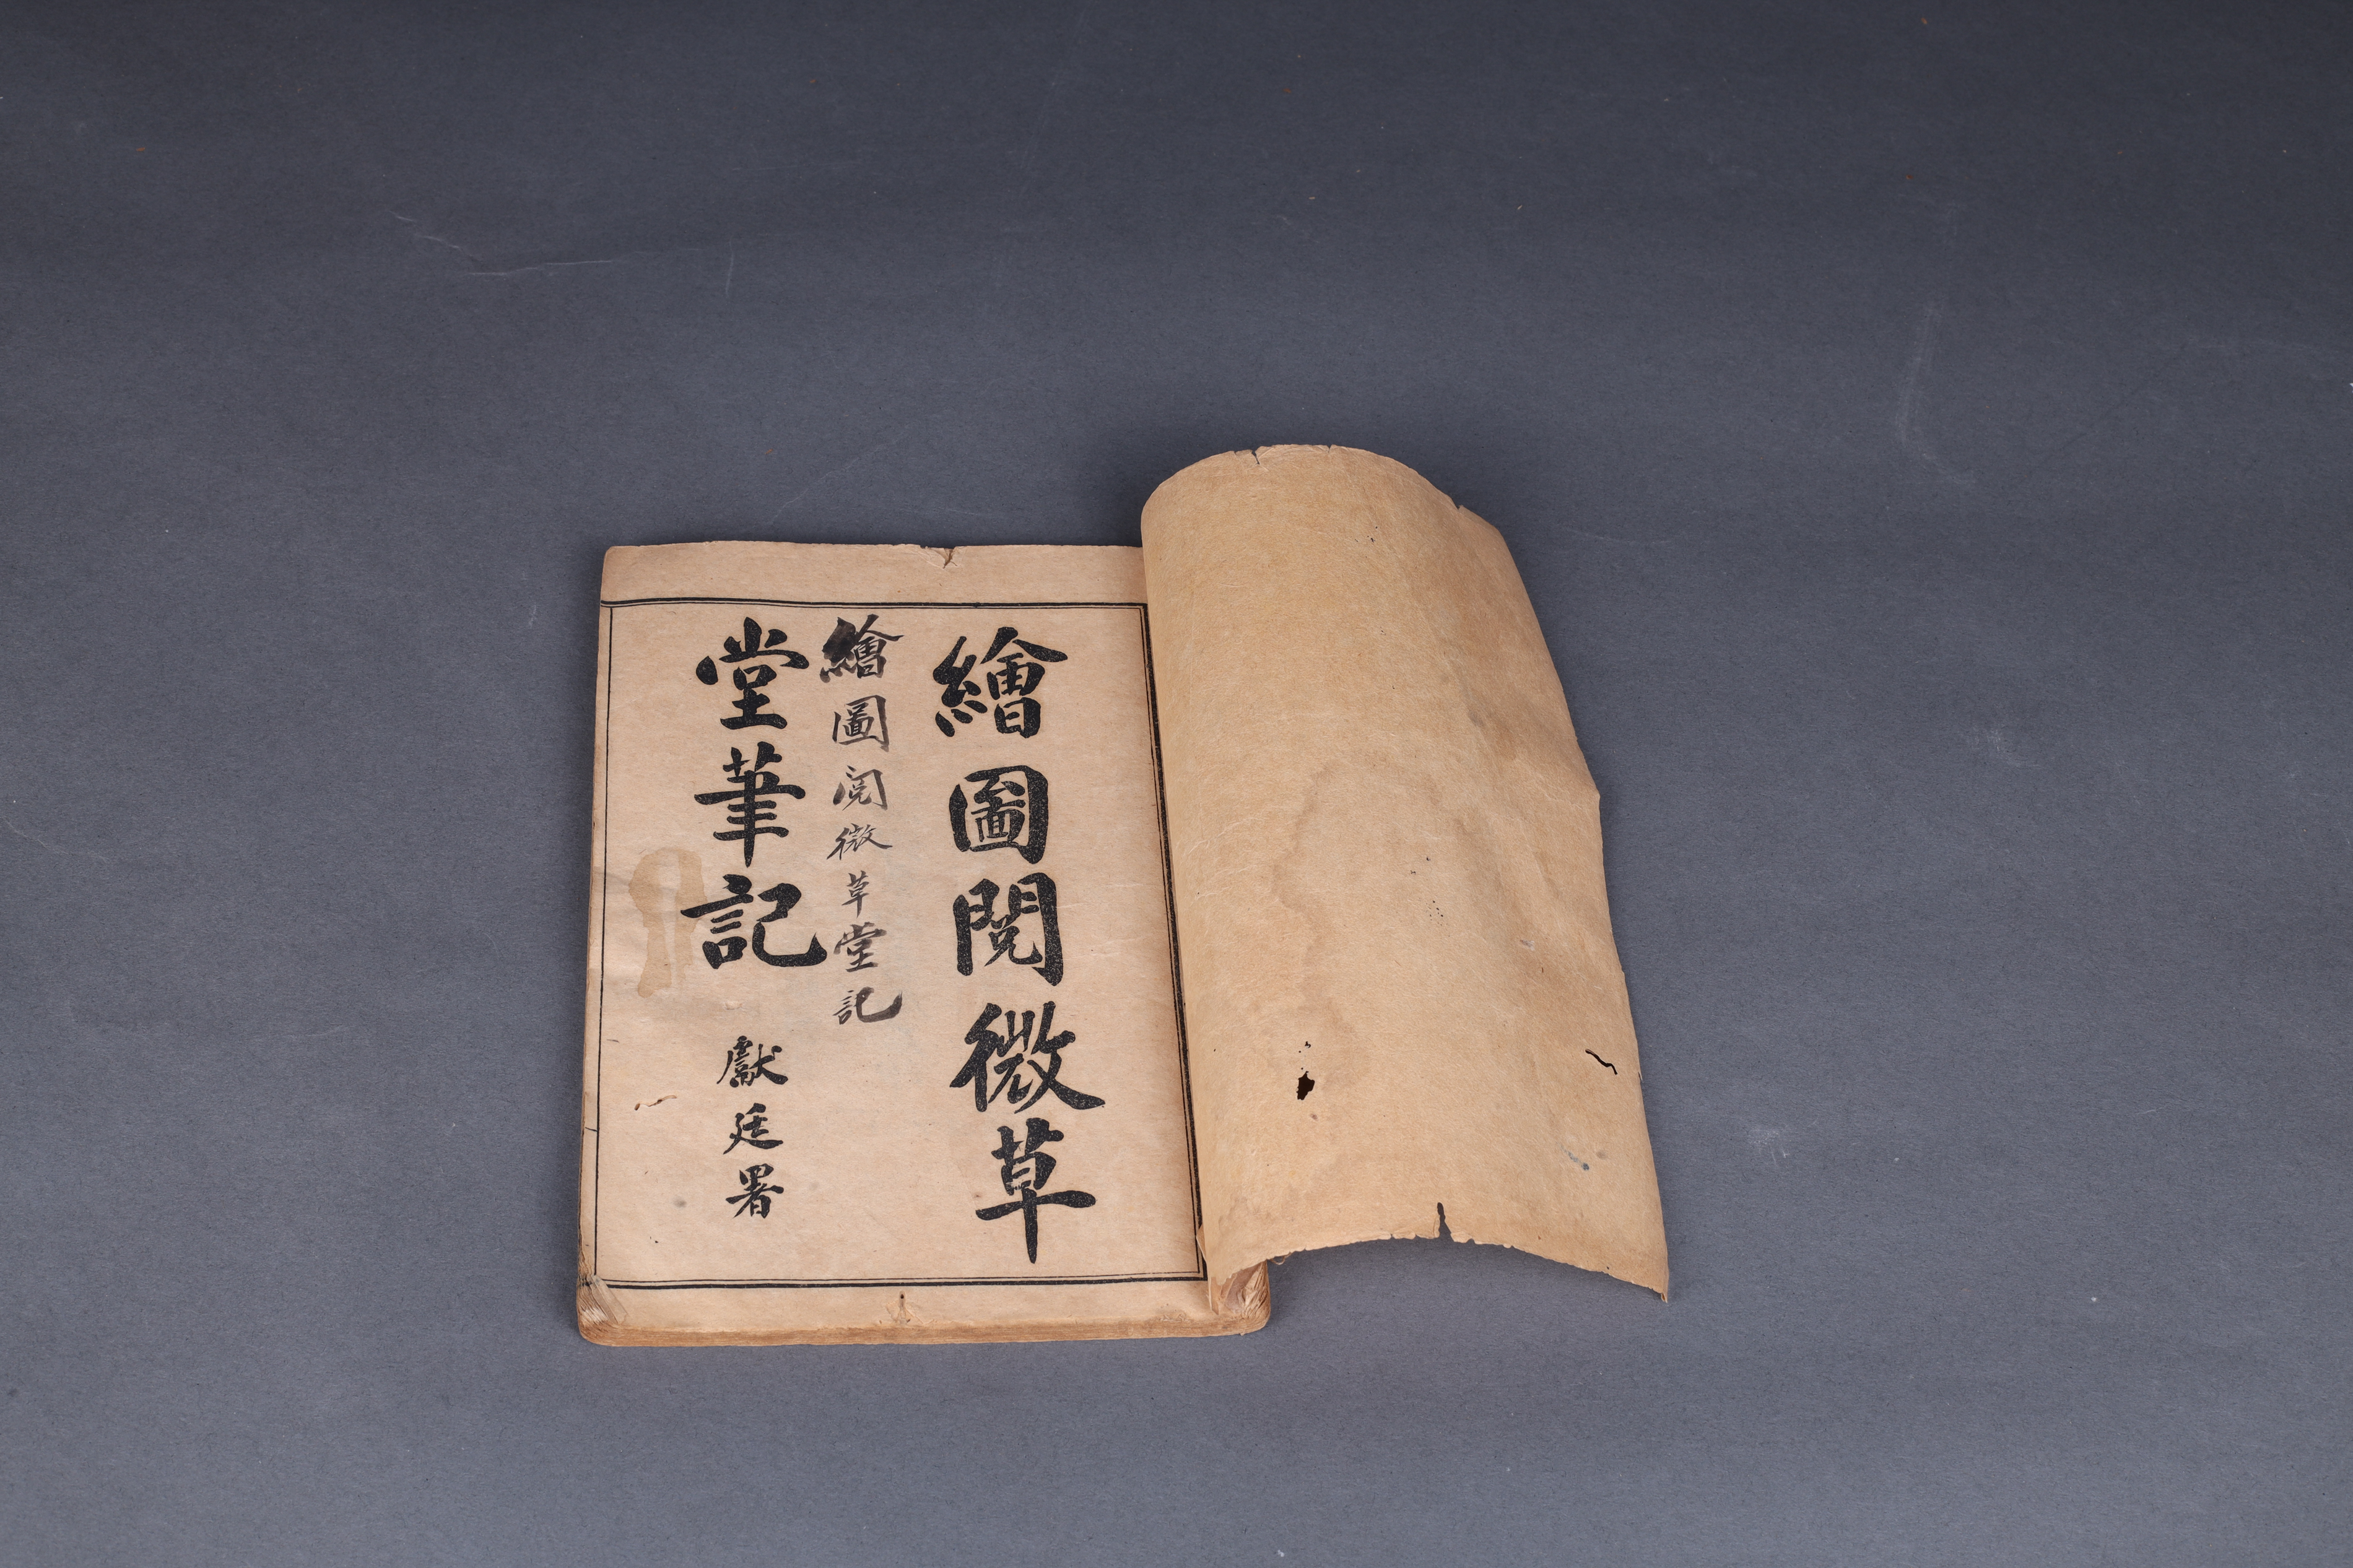 繪圖閱微草
繪圖閱微草堂記
堂筆記
獻廷署